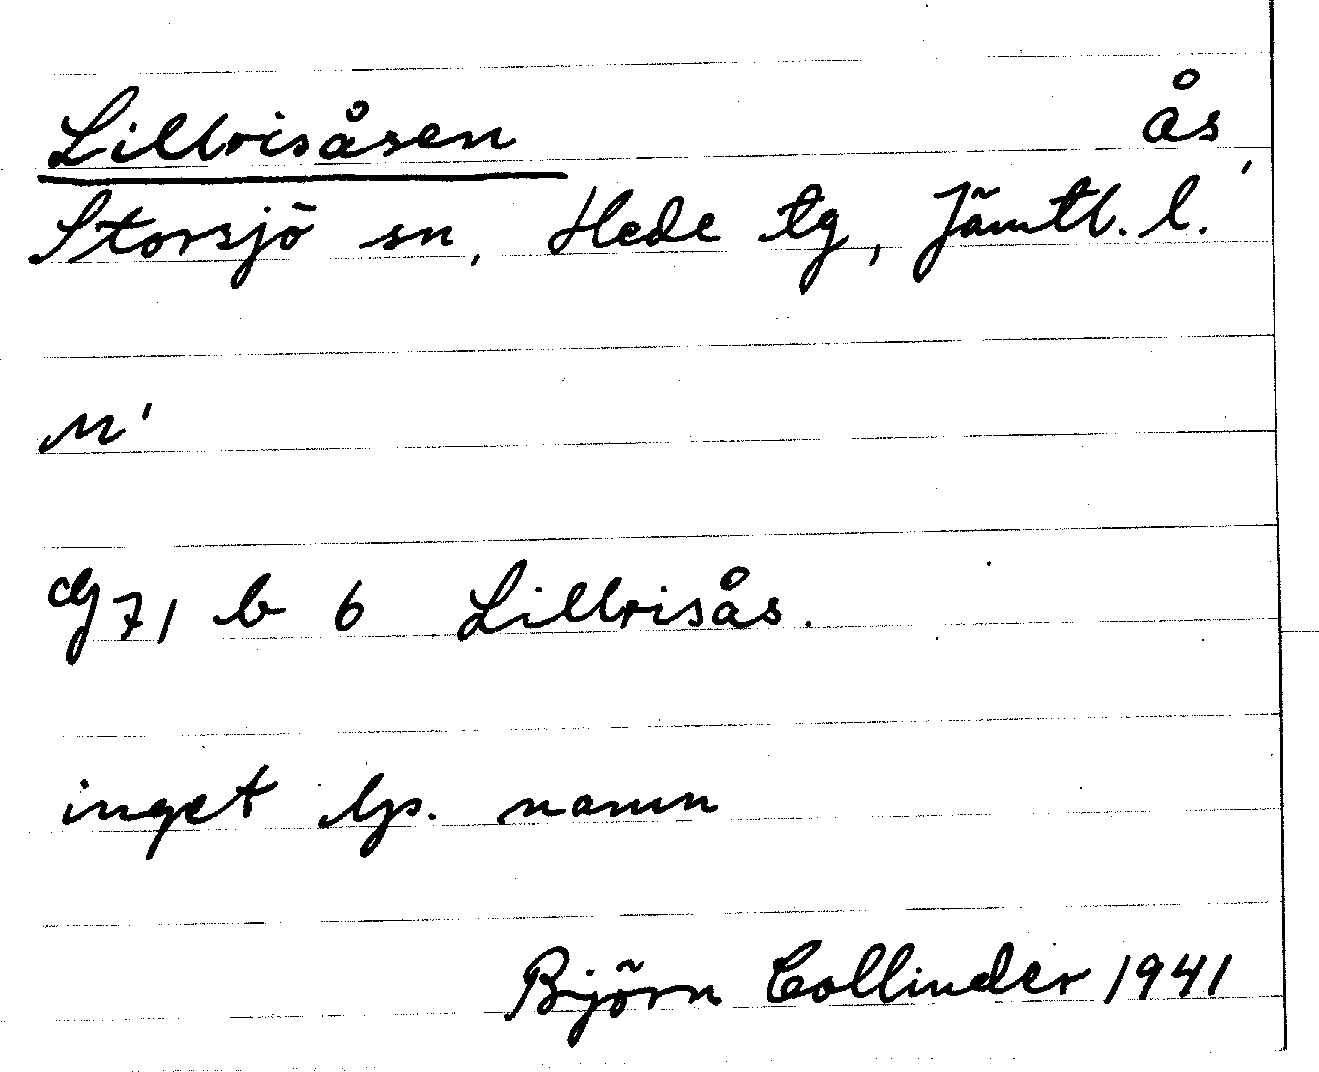 Lillrisåsen ås
Storsjö sn, Hede tg, Jämtl. l.
M'
dg 71 b 6 Lillrisås.
inget lp. namn
Björn Collinder 1941